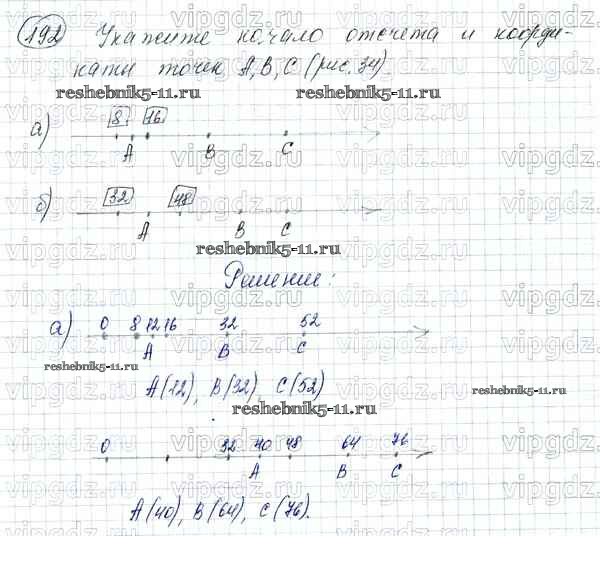 192 Укажите начало отсчета и коорди-
наты точек A, B, C (рис. 34).
reshebnik5-11.ru reshebnik5-11.ru
а) 8 16
A B C
б) 32 48
A B C
reshebnik5-11.ru
Решение:
а) 0 8 12 16 32 52
A B C
reshebnik5-11.ru
A(12), B(32), C(52)
reshebnik5-11.ru
reshebnik5-11.ru
0 32 40 48 64 76
A B C
A(40), B(64), C(76).
vipgdz.ru